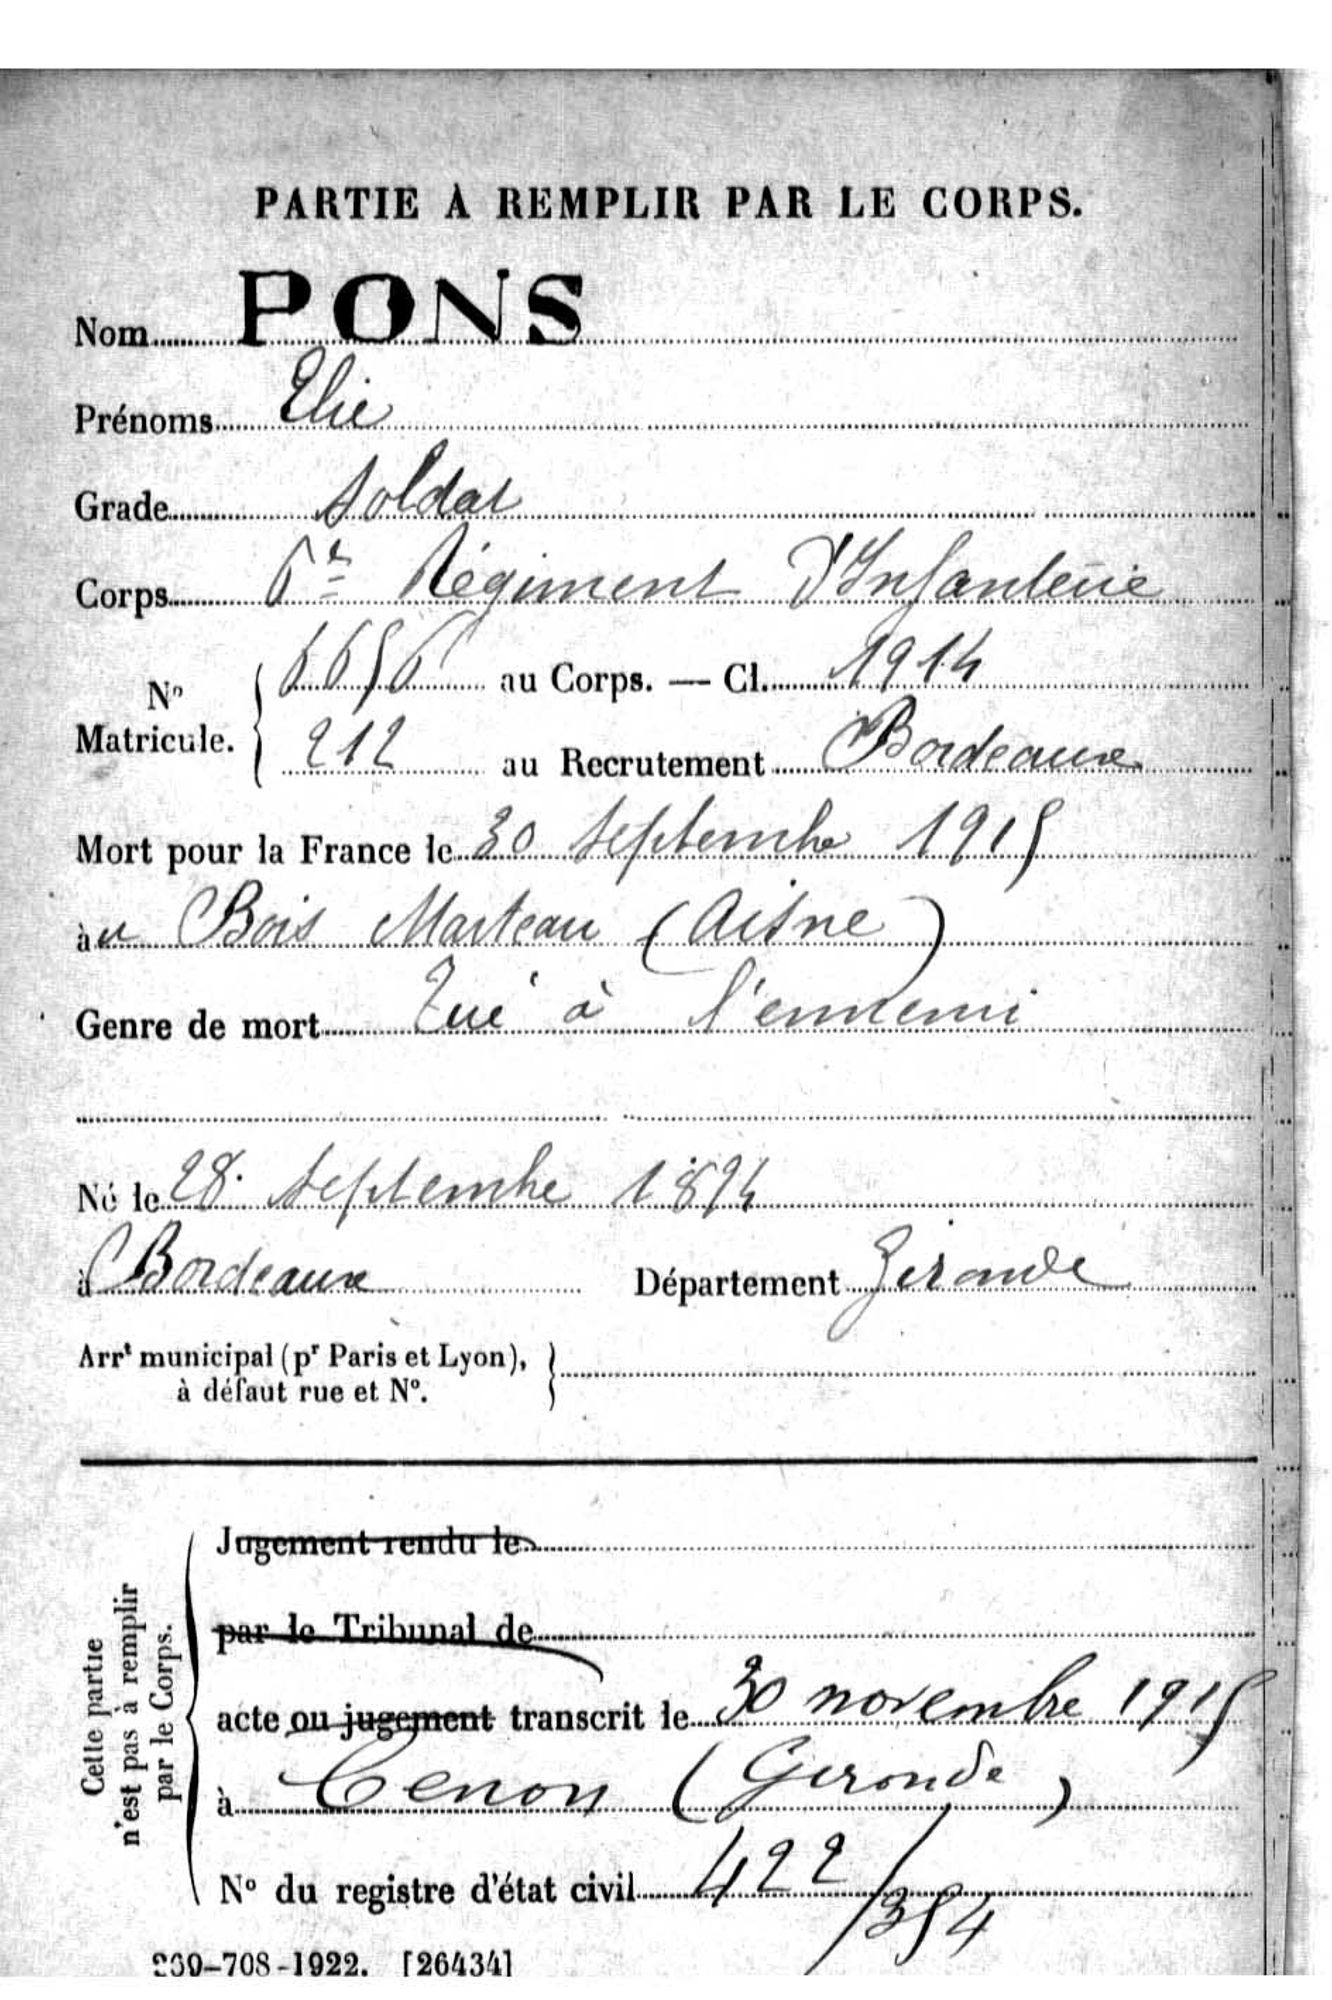 PARTIE À REMPLIR PAR LE CORPS.
Nom PONS
Prénoms Elie
Grade Soldat
Corps 6e Régiment d'Infanterie
No Matricule. 6656 au Corps. — Cl. 1914
212 au Recrutement Bordeaux
Mort pour la France le 30 Septembre 1915
au Bois Marteau (Aisne)
Genre de mort Tué à l'ennemi
Né le 28 Septembre 1894
à Bordeaux Département Gironde
Arrt municipal (pr Paris et Lyon),
à défaut rue et No.
Cette partie
n'est pas à remplir
par le Corps.
Jugement rendu le
par le Tribunal de
acte ou jugement transcrit le 30 novembre 1915
à Cenon (Gironde)
No du registre d'état civil 422/354
-708-1922. [26434]